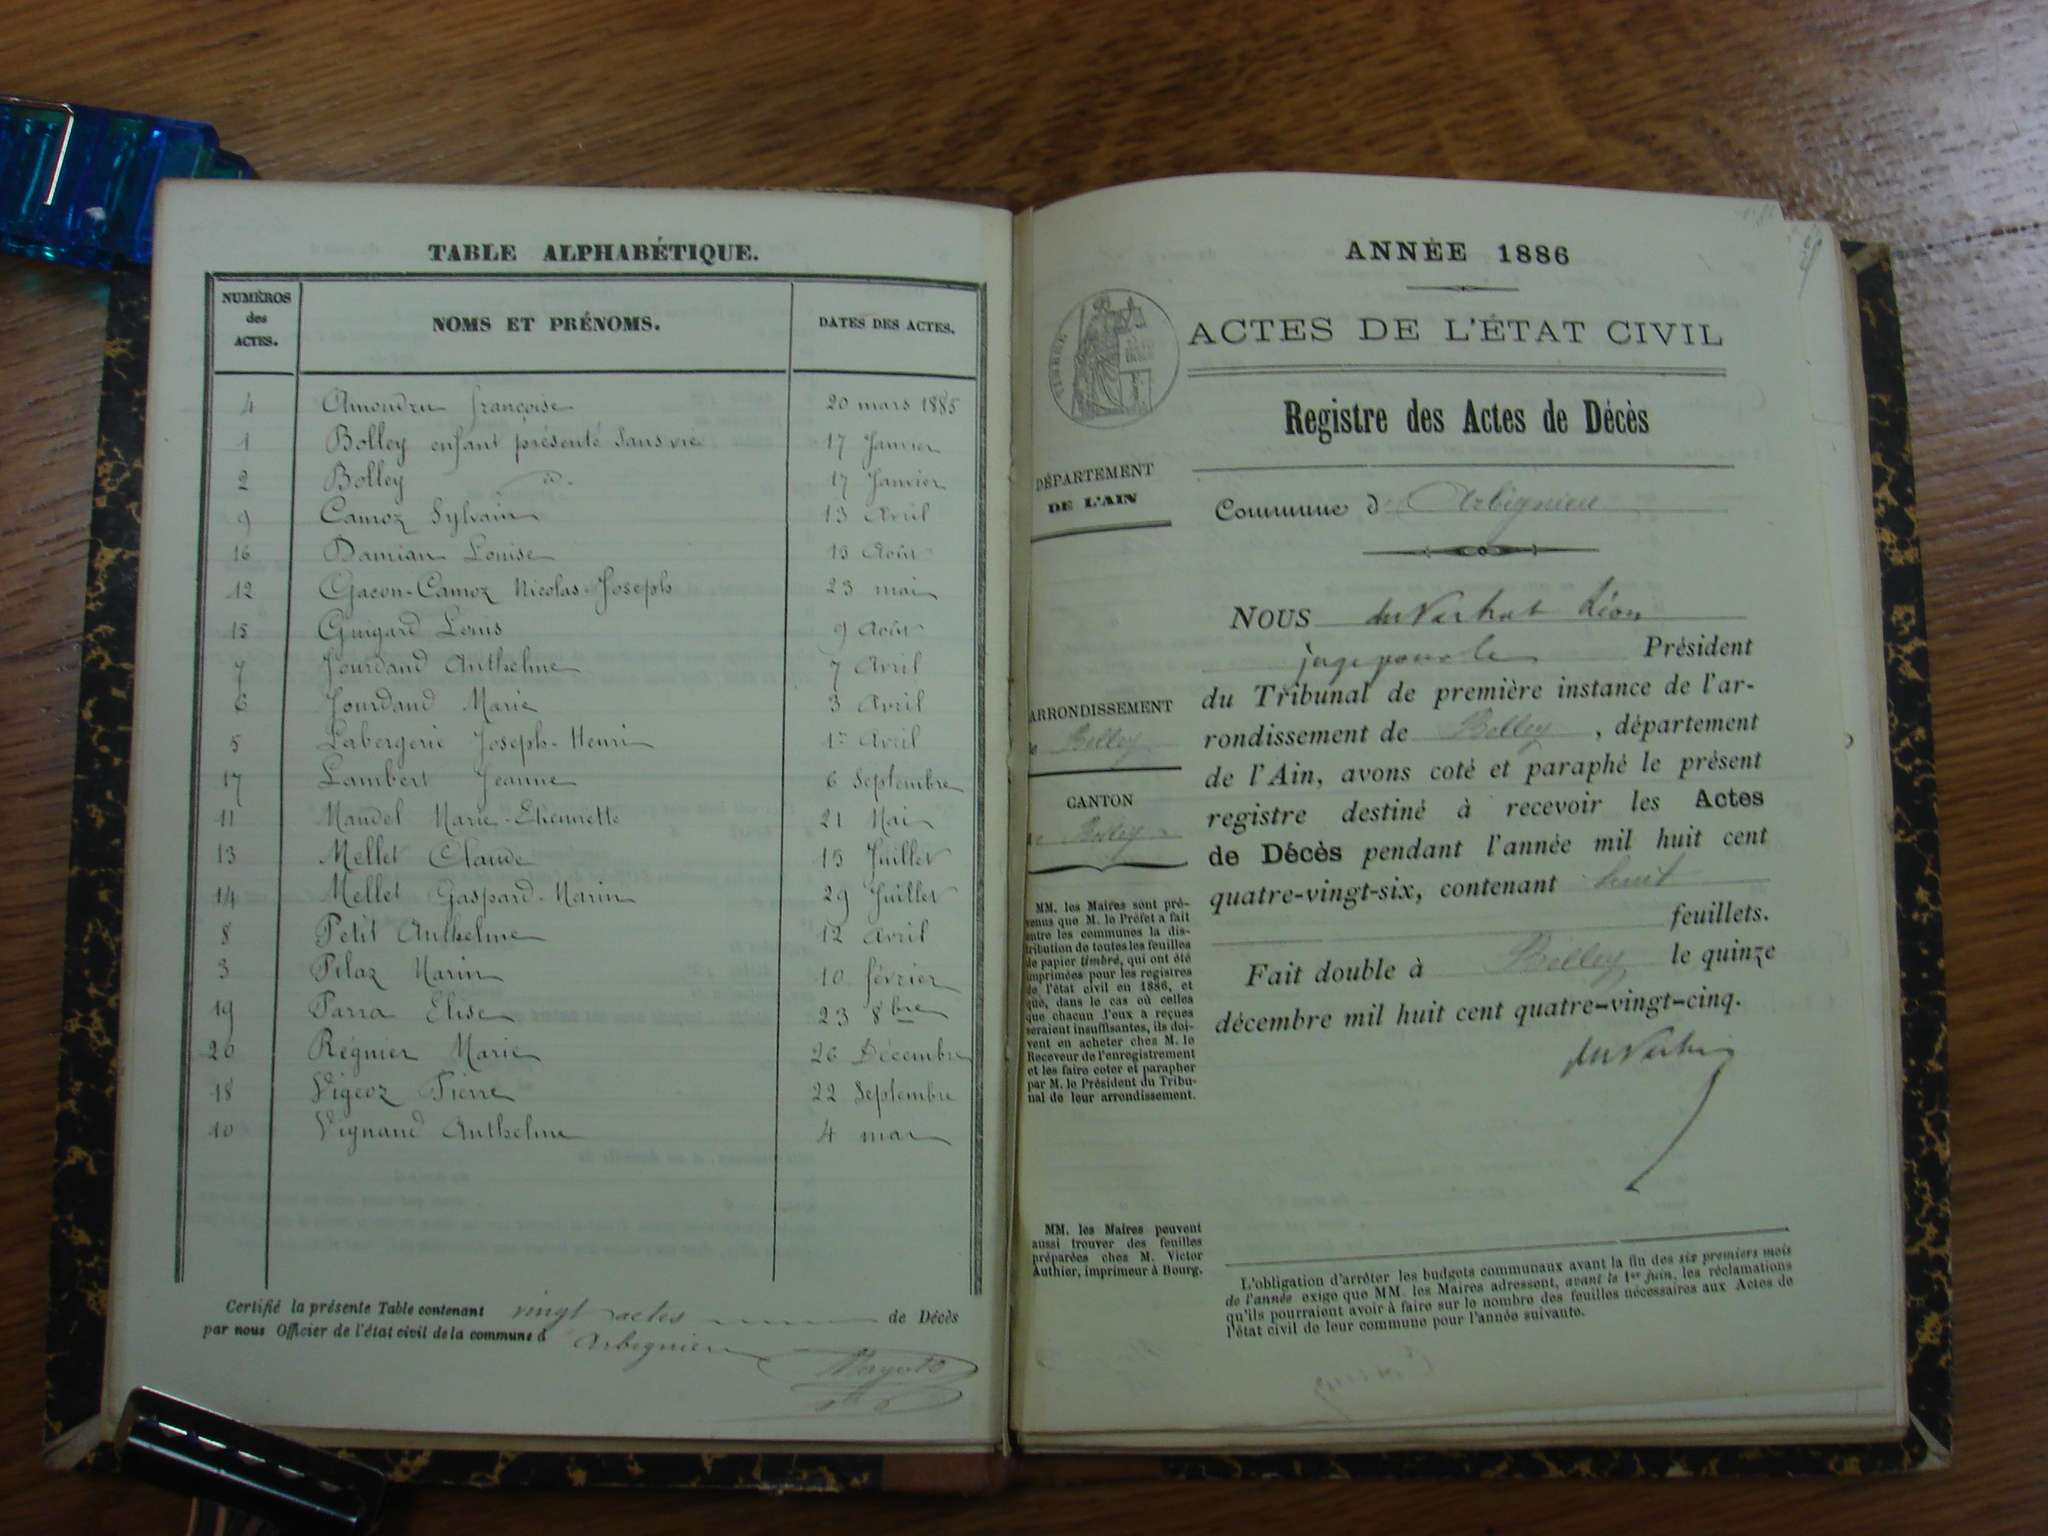 TABLE ALPHABÉTIQUE.
NUMÉROS des ACTES. NOMS ET PRÉNOMS. DATES DES ACTES.
4 Amondru françoise 20 mars 1885
1 Bolley enfant présenté sans vie 17 Janvier
2 Bolley d°. 17 Janvier
9 Camoz Sylvain 13 Avril
16 Damian Louise 13 Août
12 Gacon-Camoz Nicolas-Joseph 23 mai
15 Guigard Louis 9 Août
7 Jourdand Anthelme 7 Avril
6 Jourdand Marie 3 Avril
5 Labergerie Joseph-Henri 1er Avril
17 Lambert Jeanne 6 Septembre
11 Mandel Marie-Etiennette 21 Mai
13 Mellet Claude 15 Juillet
14 Mellet Gaspard-Marin 29 Juillet
8 Petit Anthelme 12 Avril
3 Pilaz Marin 10 février
19 Parra Elise 23 8bre
20 Régnier Marie 26 Décembre
18 Vigeoz Pierre 22 Septembre
10 Vignand Anthelme 4 mai
Certifié la présente Table contenant vingt actes de Décès
par nous Officier de l'état civil de la commune d Arbignieu
ANNÉE 1886
TIMBRE
ACTES DE L'ÉTAT CIVIL
Registre des Actes de Décès
DÉPARTEMENT
DE L'AIN
Commune d' Arbignieu
ARRONDISSEMENT
Belley
CANTON
Belley
NOUS Léon
juge pour le Président
du Tribunal de première instance de l'ar-
rondissement de Belley, département
de l'Ain, avons coté et paraphé le présent
registre destiné à recevoir les Actes
de Décès pendant l'année mil huit cent
quatre-vingt-six, contenant huit
feuillets.
Fait double à Belley le quinze
décembre mil huit cent quatre-vingt-cinq.
MM. les Maires sont pré-
venus que M. le Préfet a fait
entre les communes la dis-
tribution de toutes les feuilles
de papier timbré, qui ont été
imprimées pour les registres
de l'état civil en 1886, et
que, dans le cas où celles
que chacun d'eux a reçues
seraient insuffisantes, ils doi-
vent en acheter chez M. le
Receveur de l'enregistrement
et les faire coter et parapher
par M. le Président du Tribu-
nal de leur arrondissement.
MM. les Maires peuvent
aussi trouver des feuilles
préparées chez M. Victor
Authier, imprimeur à Bourg.
L'obligation d'arrêter les budgets communaux avant la fin des six premiers mois
de l'année exige que MM. les Maires adressent, avant le 1er juin, les réclamations
qu'ils pourraient avoir à faire sur le nombre des feuilles nécessaires aux Actes de
l'état civil de leur commune pour l'année suivante.